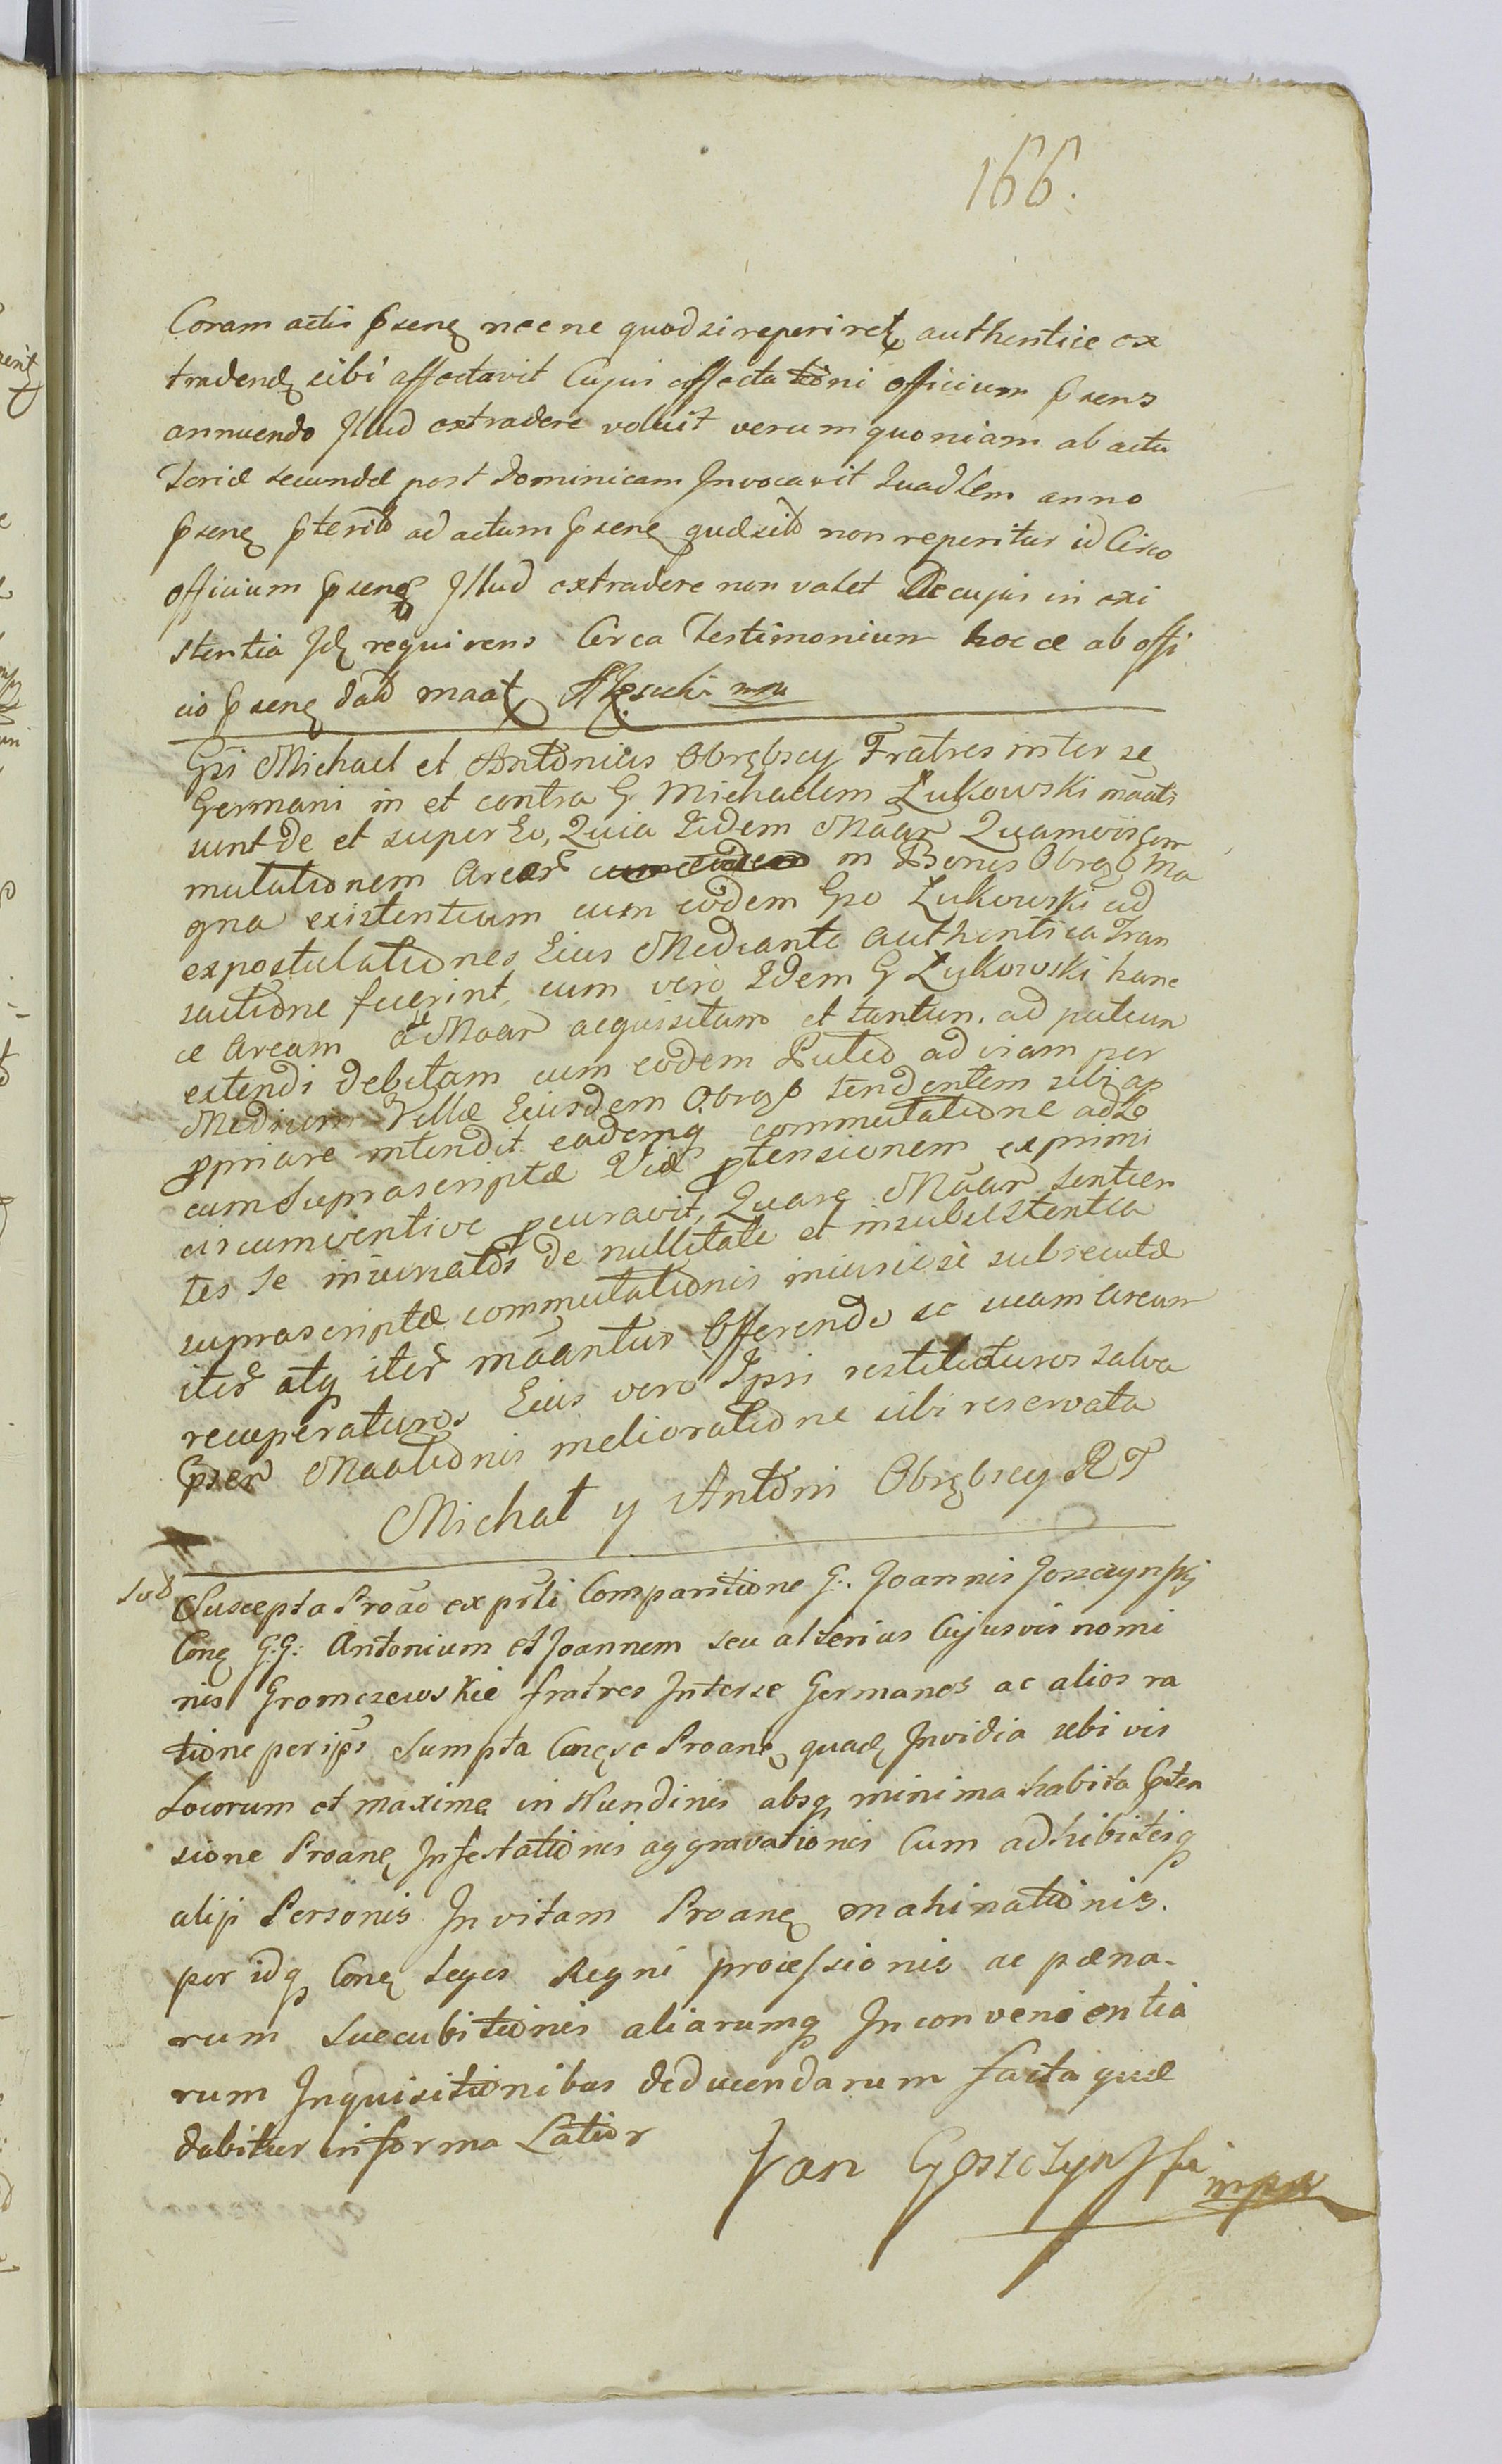 166.
Coram actis psenꝫ necne quod si reperiretꝫ authentice ex
tradendꝫ sibi affectavit Cujus affectationi officium psens
annuendo Illud extradere voluit verum quoniam ab actu
Feriæ secundæ post Dominicam Invocavit Quadlem anno
psenꝫ pterito ad actum psenꝫ quæsito non reperitur id Circo
officium psenꝫ Illud extradere non valet De cujus in exi
stentia Idꝫ requirens Circa Testimonium hocce ab offi
cio psenꝫ dato maatꝫ mpa
Gsi Michael et Antonius Obrębscy Fratres inter se
Germani in et contra G Michaelem Łukowski māati
sunt de et super Eo, Quia Iidem Māār Quamvis Com
mutationem Arear cum eodem in Bonis Obręb Ma
gna existentium cum eodem Gso Łukowski ad
expostulationes Eius Mediante authentica Tran
sactione fuerint, cum vero Idem G Łukowski hanc
ce Aream a Māār acquisitam et tantum ad puteum
extendi debitam cum eodem Puteo ad viam per
Medium Villæ Eiusdem Obręb tendentem sibi ap
ppriare intendit eademq commutatione ad Lo
cum supra scriptæ Viæ ptensionem exprimi
circumventive pcuravit, Quare Māār sentien
tes se iniuriatos de nullitate et insubsistentia
suprascriptæ commutationis iniuriose subsecutæ
iter atq iter māantur Offerendo se suam Aream
recuperaturos Eius vero Ipsi restituturos salva
pser Maationis melioratione sibi reservata
Michał y Antoni Obrębscy RT
Sod
Suscepta Proāo ex psti Comparitione G. Joannis Goszczynskj
Conꝫ G.G: Antonium et Joannem seu alterius Cujusvis nomi
nis Gromczewskie fratres Inter se Germanos ac alios ra
tione per ips Sumpta Conꝫ se Proanꝫ quadꝫ Invidia ubi vis
Locorum et maxime in Nundinis absq minima habita pten
sione Proanꝫ Infestationis aggravationis Cum adhibitisq
alijs Personis In vitam Proanꝫ mahinationis.
per idq Conꝫ Leges Regni processionis ac pæna-
rum succubitionis aliarumq Inconvenientia
rum Inquisitionibus deducendarum facta quæ
dabitur in forma Latior
Jan Goszczynski mpa